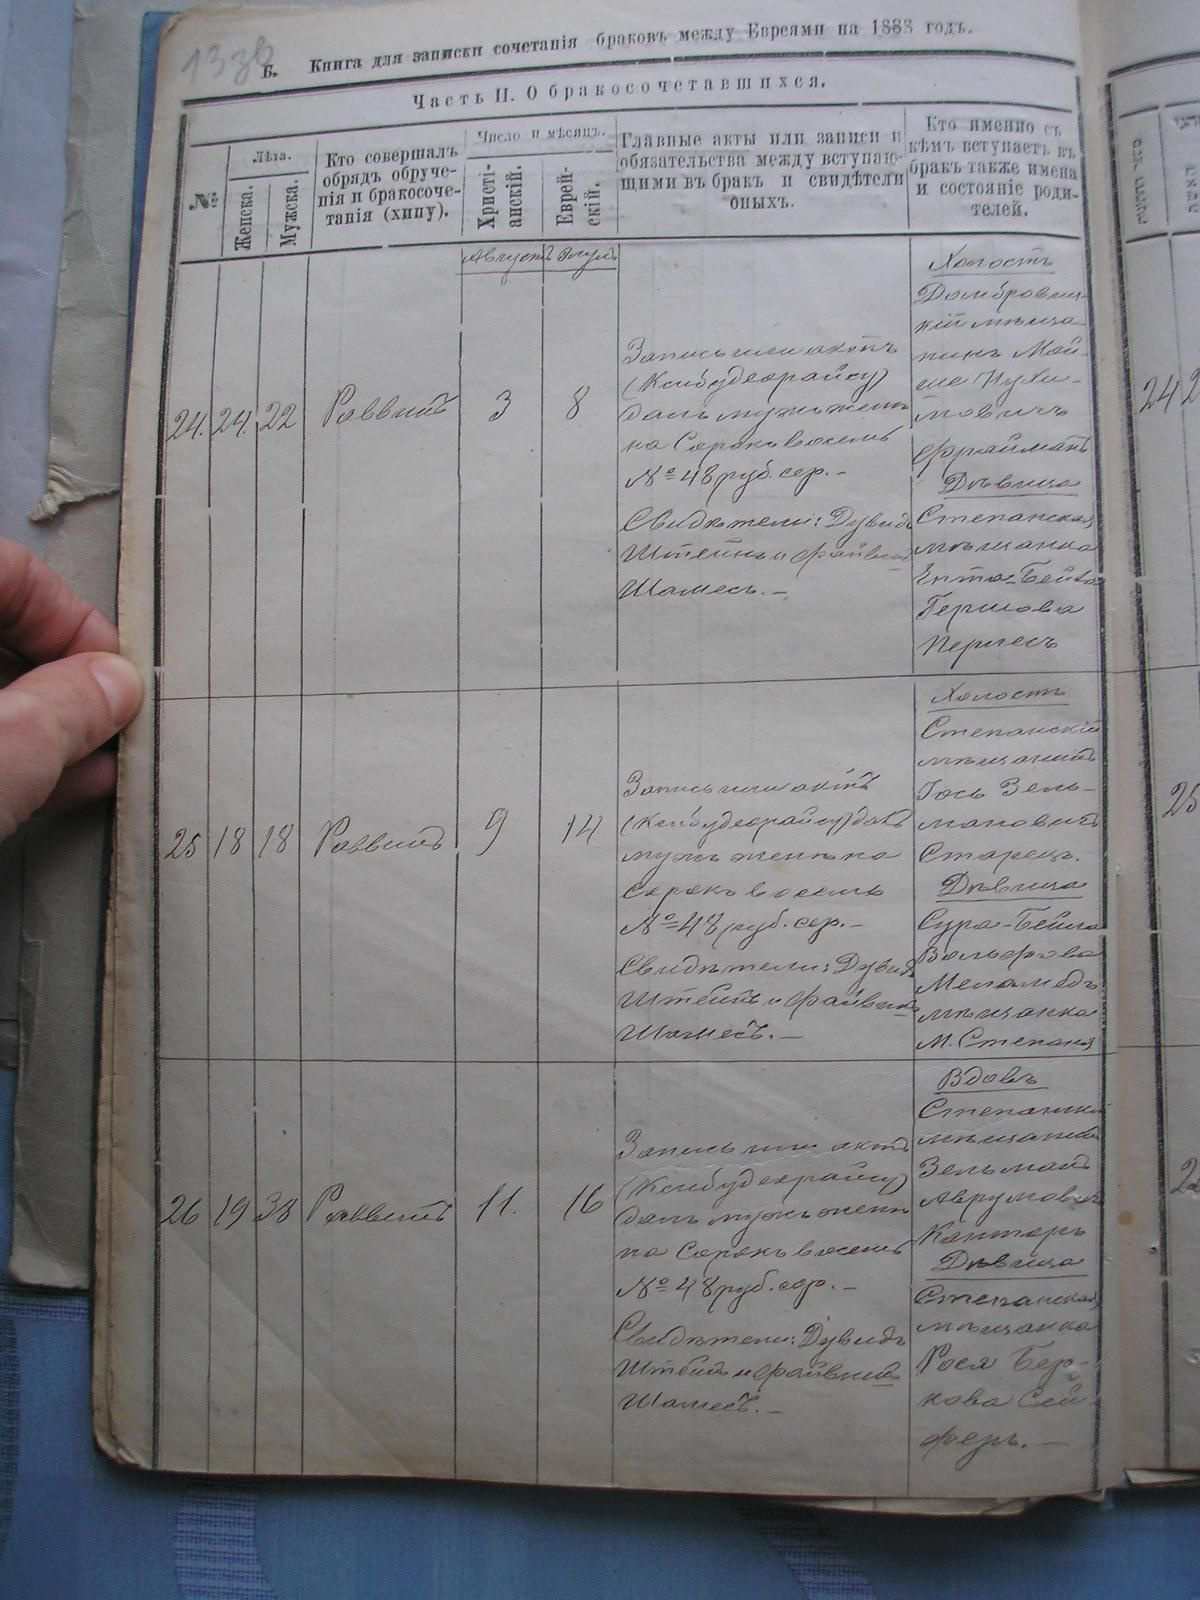 13зв
Б. Книга для записки сочетанія браковъ между Евреями на 1888 годъ.
Часть II. О бракосочетавшихся.
№
Лѣта.
Женска.
Мужска.
Кто совершалъ
обрядъ обруче-
нія и бракосоче-
танія (хипу).
Число и мѣсяцъ.
Христі-
анскій.
Еврей-
скій.
Главные акты или записи и
обязательства между вступаю-
щими въ бракъ и свидѣтели
оныхъ.
Кто именно съ
кѣмъ вступаетъ въ
бракъ также имена
и состояніе роди-
телей.
Августъ
Элулъ
24. 24. 22 Раввинъ 3 8
Запись или актъ
далъ мужъ женѣ
на Сорокъ восемь
№ 48 руб. сер. -
Свидѣтели: Дувидъ
Штейнъ и Файвишъ
Шамесъ. -
Холостъ
Домбровиц-
кій мѣща-
нинъ Мой-
ше Нухи-
мовичъ
Фрайманъ
Дѣвица
Степанская
мѣщанка
Ента-Бейла
Гершова
Перлесъ
25 18 18 Раввинъ 9 14
Запись или актъ
мужъ женѣ на
сорокъ восемь
№ 48 руб. сер. -
Свидѣтели: Дувидъ
Штейнъ и Файвишъ
Шамесъ. -
Холостъ
Степанскій
мѣщанинъ
Іось Зель-
мановичъ
Старецъ.
Дѣвица
Сура-Бейла
Вольфова
Меламедъ
мѣщанка
М. Степаня
26 19 38 Раввинъ 11. 16
Запись или актъ
далъ мужъ женѣ
на Сорокъ восемь
№ 48 руб. сер. -
Свидѣтели: Дувидъ
Штейнъ и Файвишъ
Шамесъ. -
Вдовъ
Степанскій
мѣщанинъ
Зельманъ
Аврумовичъ
Канторъ
Дѣвица
Степанская
мѣщанка
Рося Бер-
кова Сей-
феръ. -
24
25